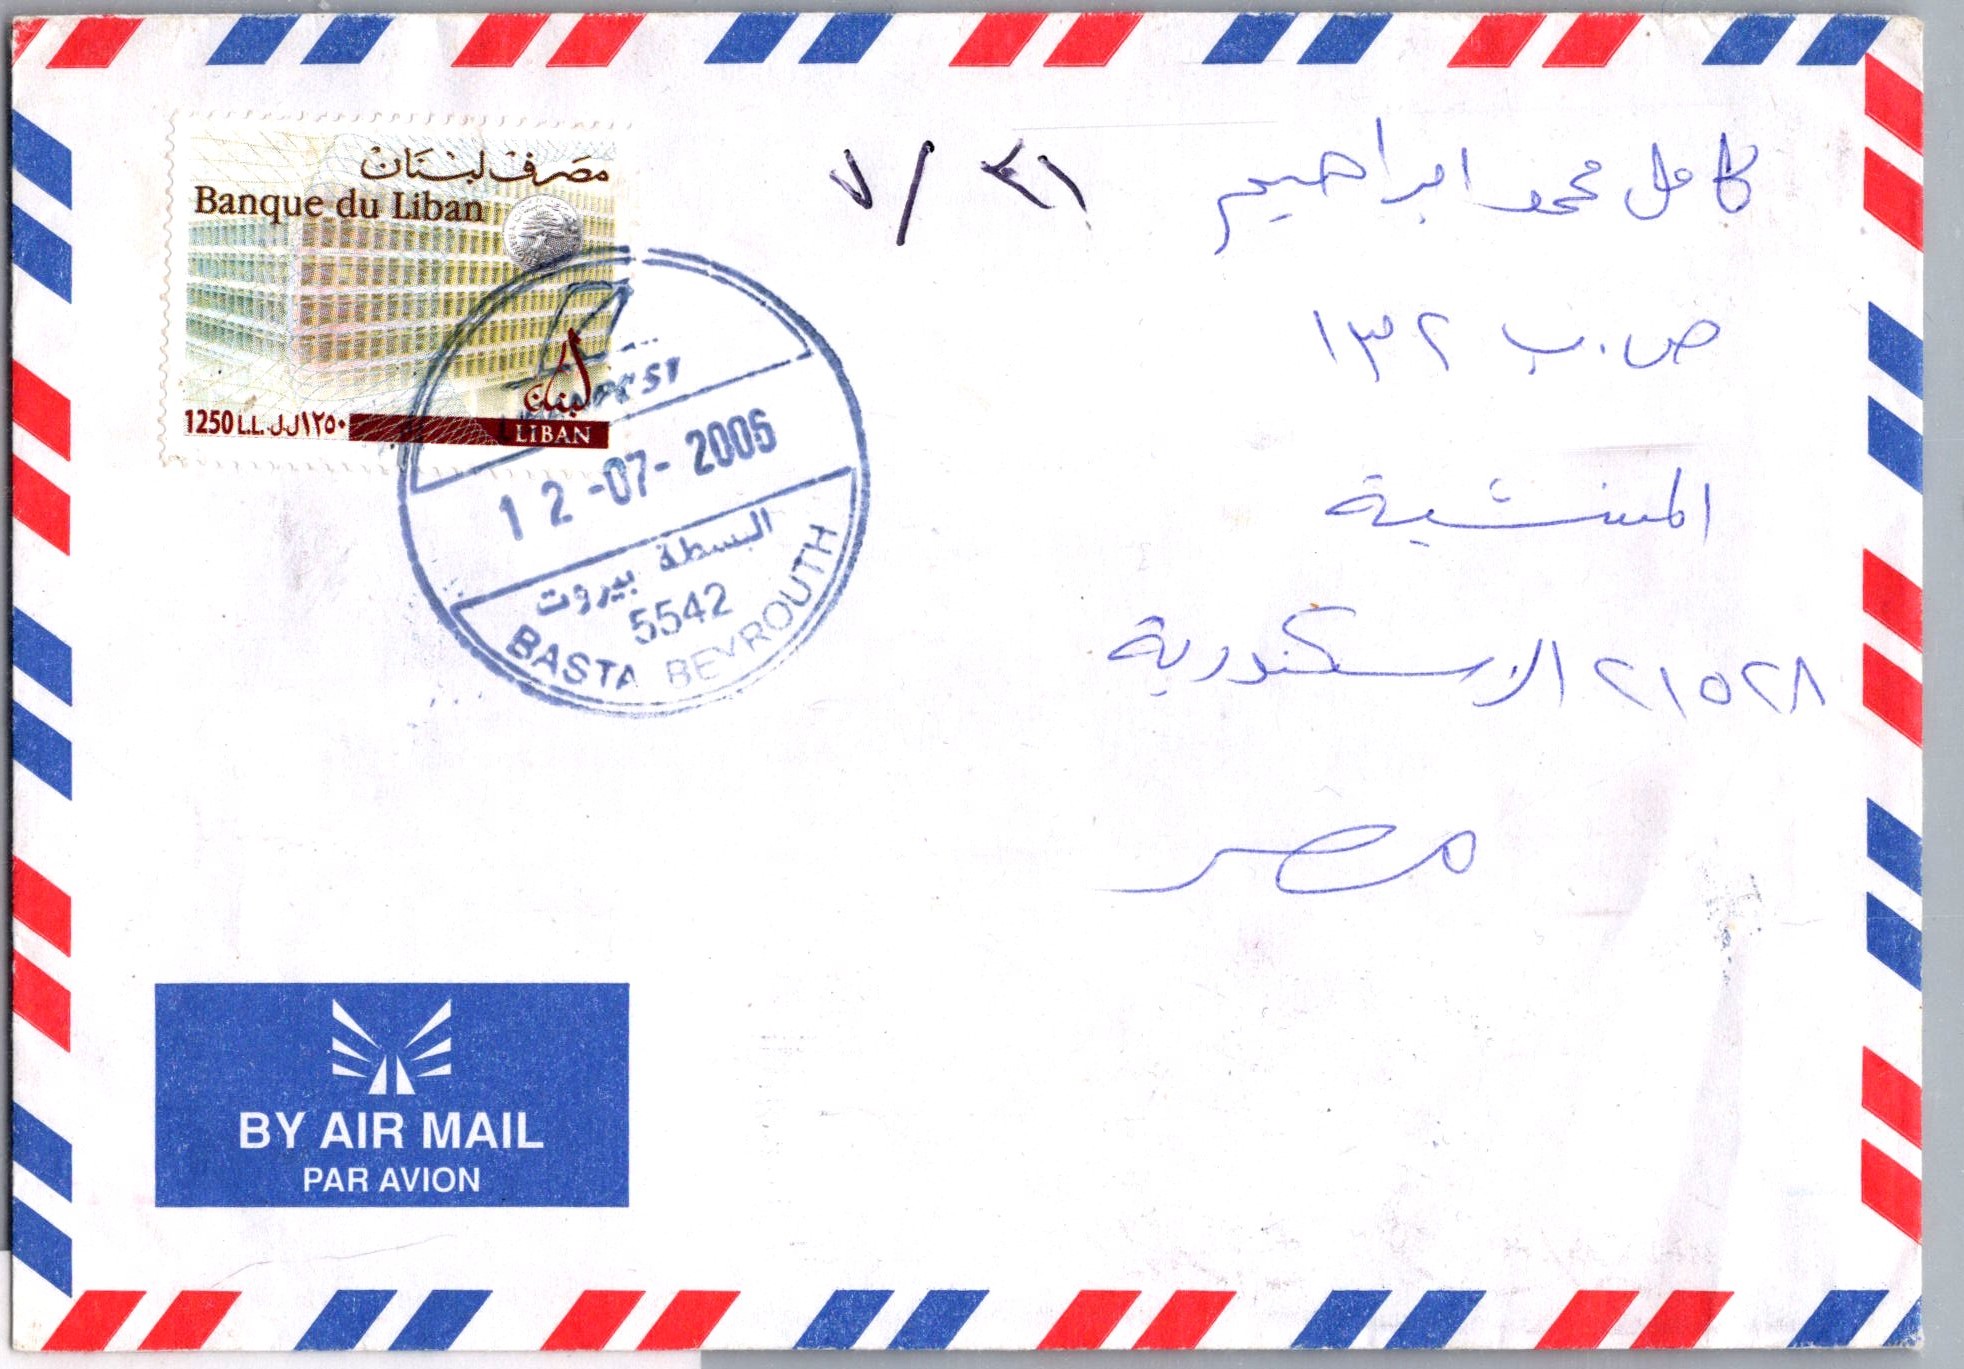 مصرف لبنان
Banque du Liban
لبنان
1250 L.L. ل.ل ١٢٥٠
LIBAN
12-07-2006
البسطة بيروت
5542
BASTA BEYROUTH
٧/٣١
كامل محمد ابراهيم
ص.ب ١٣٢
المنشية
٢١٥٢٨ الاسكندرية
مصر
BY AIR MAIL
PAR AVION